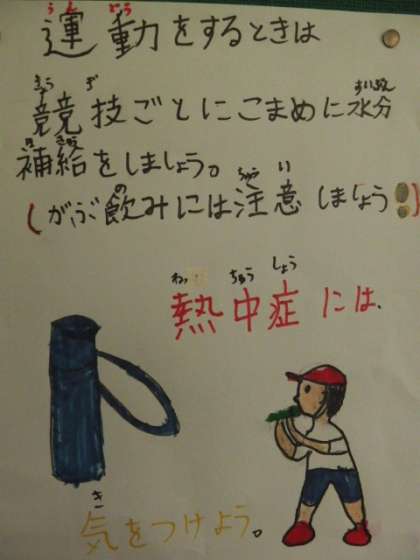 運動をするときは
競技ごとにこまめに水分
補給をしましょう。
(がぶ飲みには注意しましょう!!)
熱中症には、
気をつけよう。